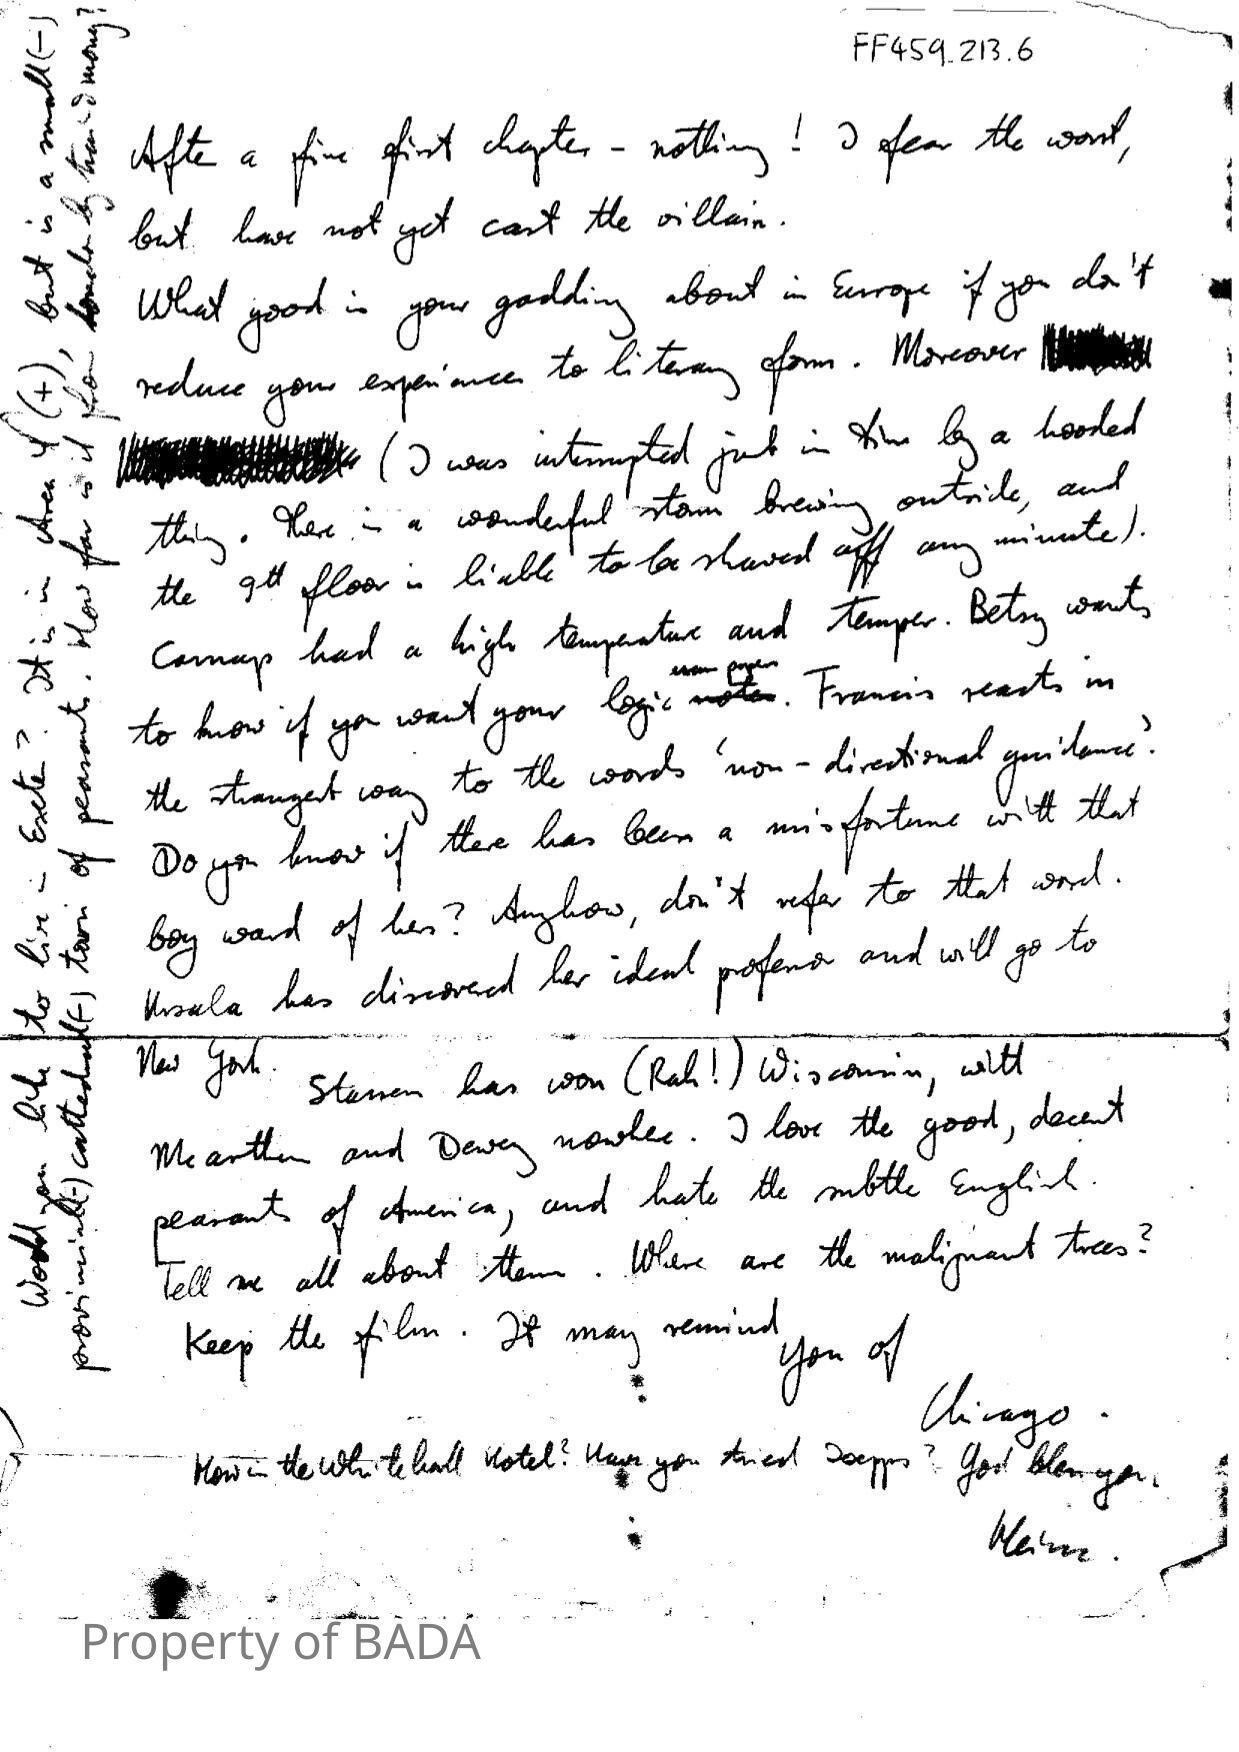 FF459.213.6
After a fine first chapter – nothing! I fear the worst,
but have not yet cast the villain.
What good is your gadding about in Europe if you don't
reduce your experiences to literary form. Moreover
(I was interrupted just in time by a hooded
thing. There is a wonderful storm brewing outside, and
the 9th floor is liable to be shaved off any minute).
Carnap had a high temperature and temper. Betsy wants
exam papers
to know if you want your logic notes. Francis reacts in
the strangest way to the words 'non-directional guidance'.
Do you know if there has been a misfortune with that
boy ward of hers? Anyhow, don't refer to that word.
Ursula has discovered her ideal professor and will go to
New York.
Stassen has won (Rah!) Wisconsin, with
McArthur and Dewey nowhere. I love the good, decent
peasants of America, and hate the subtle English.
Tell me all about them. Where are the malignant trees?
Keep the film. It may remind you of
Chicago.
How is the Whitehall Hotel? Have you tried? God bless you.
Would you like to live – Exeter? It is in Area (+), but is a small (–)
provincial (–) cathedral (–) town of peasants. How far is it from London by train & money?
Property of BADA